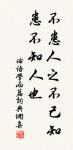 不患人之不己知
患不知人也
論語學而篇詞典網集